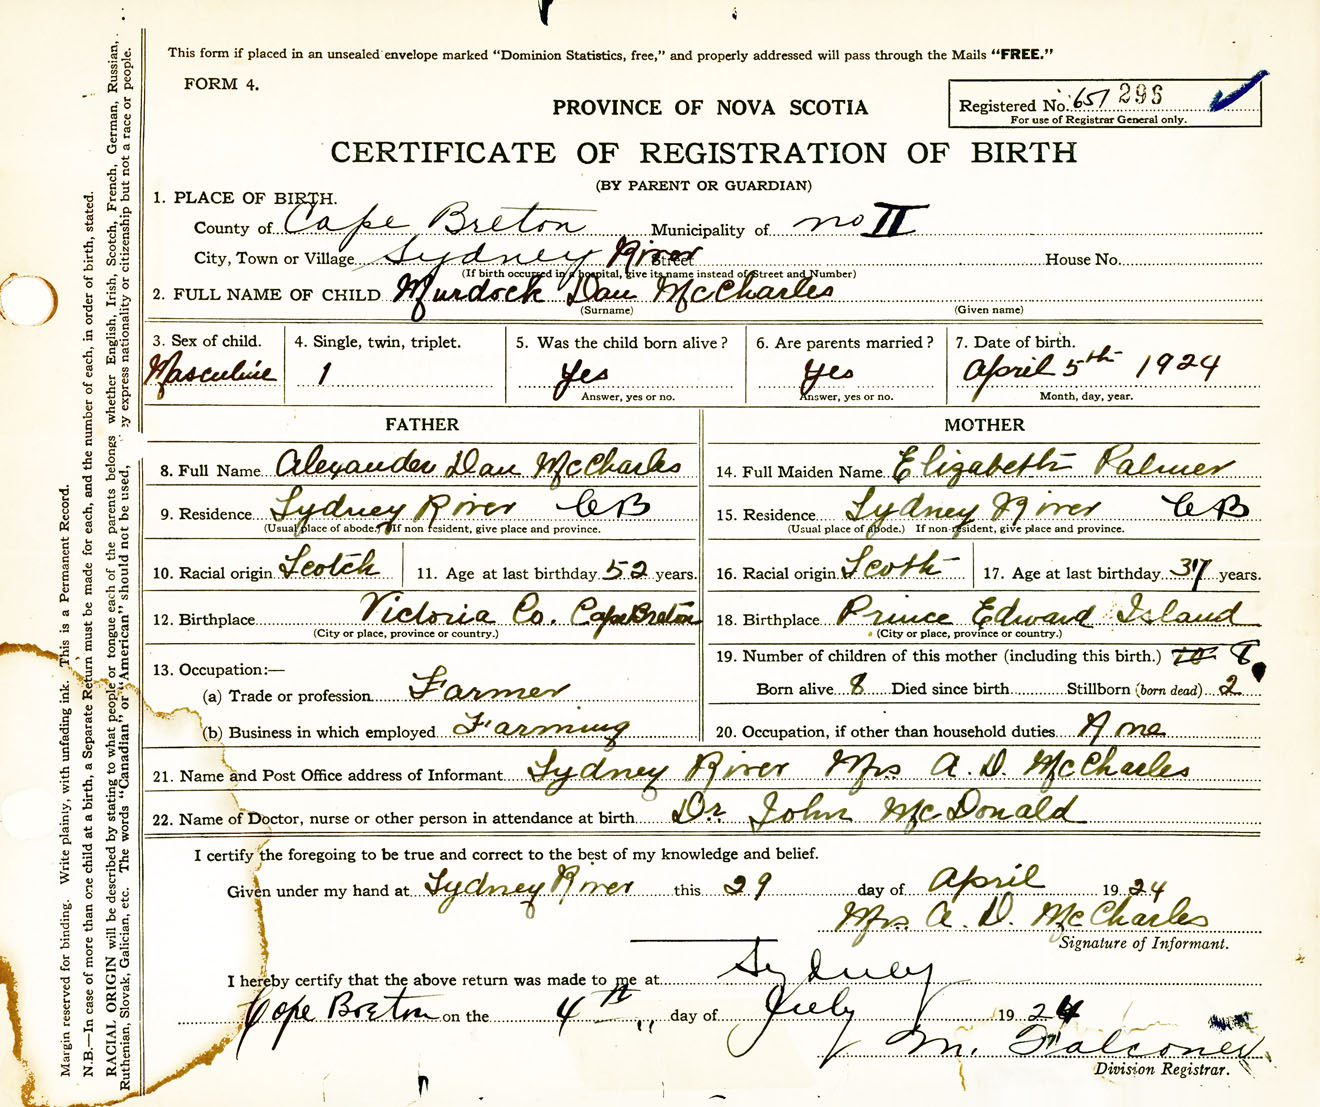 This form if placed in an unsealed envelope marked “Dominion Statistics, free,” and properly addressed will pass through the Mails “FREE.”
FORM 4.
Registered No. 651 296
For use of Registrar General only.
PROVINCE OF NOVA SCOTIA
CERTIFICATE OF REGISTRATION OF BIRTH
(BY PARENT OR GUARDIAN)
1. PLACE OF BIRTH.
County of Cape Breton Municipality of no II
City, Town or Village Sydney River Street House No.
(If birth occurred in a hospital, give its name instead of Street and Number)
2. FULL NAME OF CHILD Murdock Dan McCharles
(Surname) (Given name)
3. Sex of child. Masculine
4. Single, twin, triplet. 1
5. Was the child born alive? Yes
Answer, yes or no.
6. Are parents married? Yes
Answer, yes or no.
7. Date of birth. April 5th 1924
Month, day, year.
FATHER
8. Full Name Alexander Dan McCharles
9. Residence Sydney River CB
(Usual place of abode.) If non resident, give place and province.
10. Racial origin Scotch 11. Age at last birthday 52 years.
12. Birthplace Victoria Co. Cape Breton
(City or place, province or country.)
13. Occupation:—
(a) Trade or profession Farmer
(b) Business in which employed Farming
MOTHER
14. Full Maiden Name Elizabeth Palmer
15. Residence Sydney River CB
(Usual place of abode.) If non-resident, give place and province.
16. Racial origin Scoth 17. Age at last birthday 37 years.
18. Birthplace Prince Edward Island
(City or place, province or country.)
19. Number of children of this mother (including this birth.) 10 8
Born alive 8 Died since birth Stillborn (born dead) 2
20. Occupation, if other than household duties None
21. Name and Post Office address of Informant Sydney River Mrs A. D. McCharles
22. Name of Doctor, nurse or other person in attendance at birth Dr. John McDonald
I certify the foregoing to be true and correct to the best of my knowledge and belief.
Given under my hand at Sydney River this 29 day of April 1924
Mrs A. D. McCharles
Signature of Informant.
I hereby certify that the above return was made to me at Sydney
Cape Breton on the 4th day of July 1924
M. Falconer
Division Registrar.
Margin reserved for binding. Write plainly, with unfading ink. This is a Permanent Record.
N.B.—In case of more than one child at a birth, a Separate Return must be made for each, and the number of each, in order of birth, stated.
RACIAL ORIGIN will be described by stating to what people or tongue each of the parents belongs whether English, Irish, Scotch, French, German, Russian,
Ruthenian, Slovak, Galician, etc. The words “Canadian” or “American” should not be used, express nationality or citizenship but not a race or people.